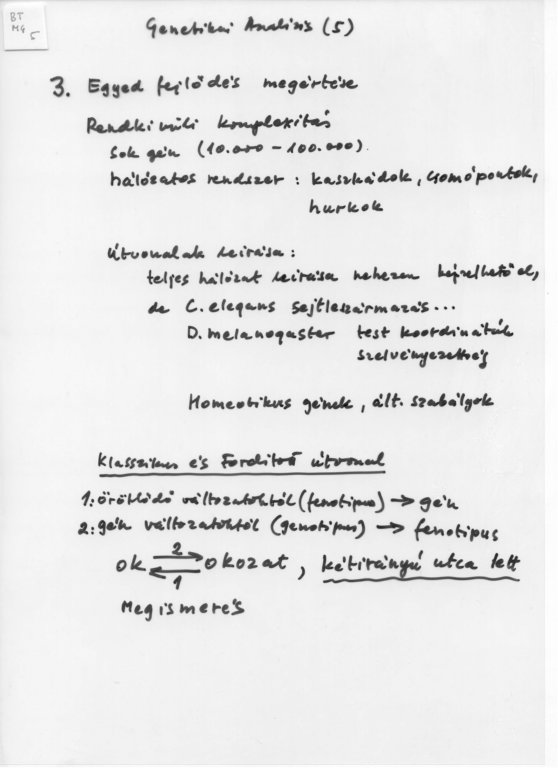 BT
MG
5
Genetikai Analízis (5)
3. Egyed fejlődés megértése
Rendkívüli komplexitás
Sok gén (10.000 - 100.000).
hálózatos rendszer : kaszkádok, csomópontok,
hurkok
Útvonalak leírása :
teljes hálózat leírása nehezen képzelhető el,
de C. elegans sejtleszármazás...
D. melanogaster test koordináták
szelvényezettség
Homeotikus gének, ált. szabályok
Klasszikus és Fordított útvonal
1: öröklődő változatoktól (fenotipus) → gén
2: gén változatoktól (genotipus) → fenotipus
2
ok ⇄ okozat, kétirányú utca lett
1
Megismerés